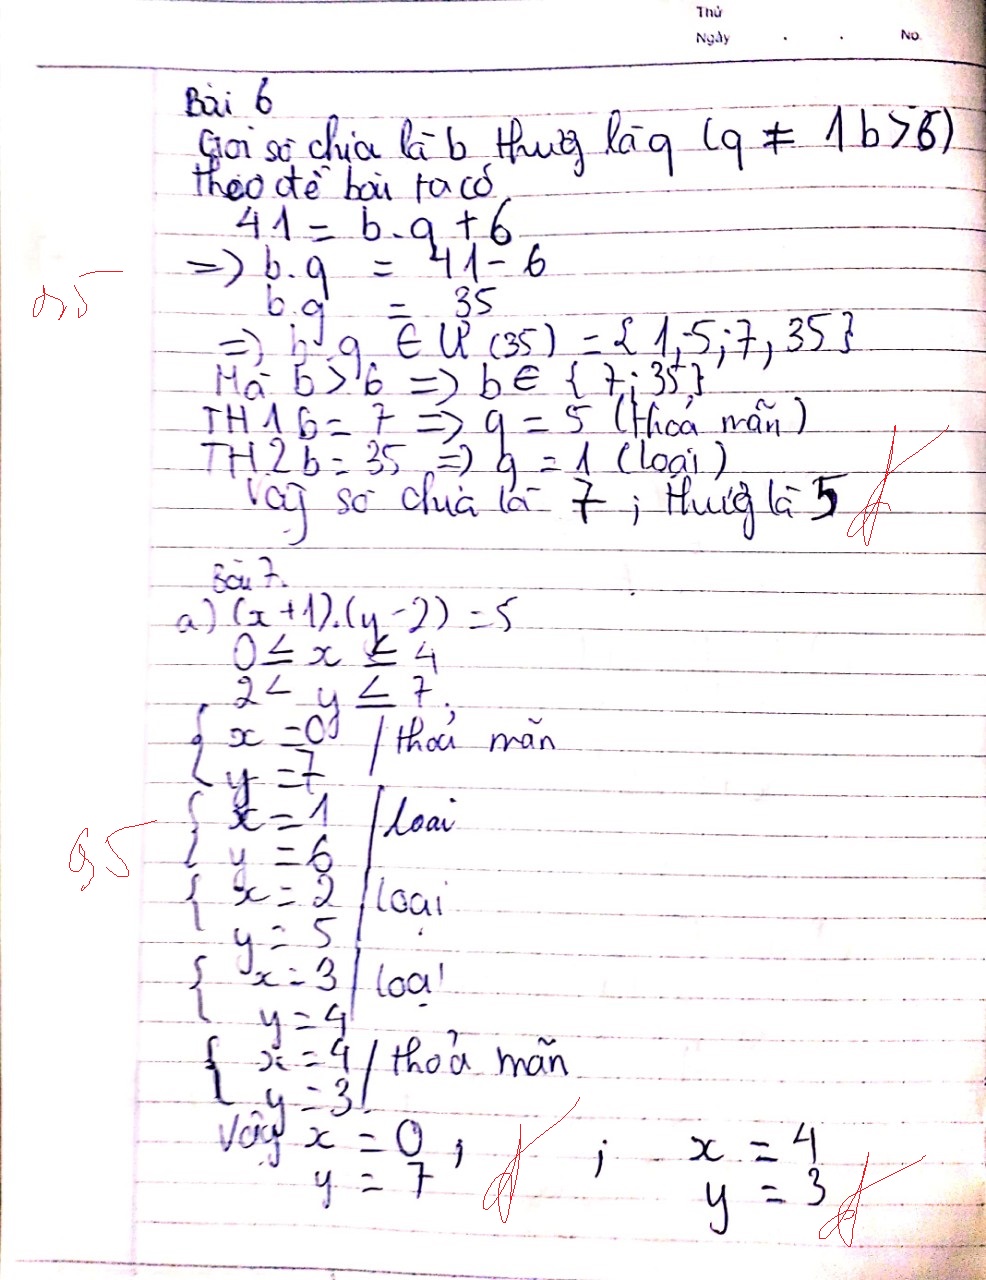 Thứ
Ngày . . No.
Bài 6
Gọi số chia là b thương là q (q ≠ 1 b > 6)
theo đề bài ta có
41 = b.q + 6
=> b.q = 41 - 6
b.q = 35
0,5
=> b.q ∈ Ư (35) = {1,5;7,35}
Mà b > 6 => b ∈ {7;35}
TH1 b = 7 => q = 5 (thoả mãn)
TH2 b = 35 => q = 1 (loại)
Vậy số chia là 7 ; thương là 5
Bài 7.
a) (x+1).(y-2) = 5
0 ≤ x ≤ 4
2 < y ≤ 7
{ x = 0 / thoả mãn
y = 7
{ x = 1 / loại
0,5
y = 6
{ x = 2 / loại
y = 5
{ x = 3 / loại
y = 4
{ x = 4 / thoả mãn
y = 3
Vậy x = 0 ; ; x = 4
y = 7 y = 3